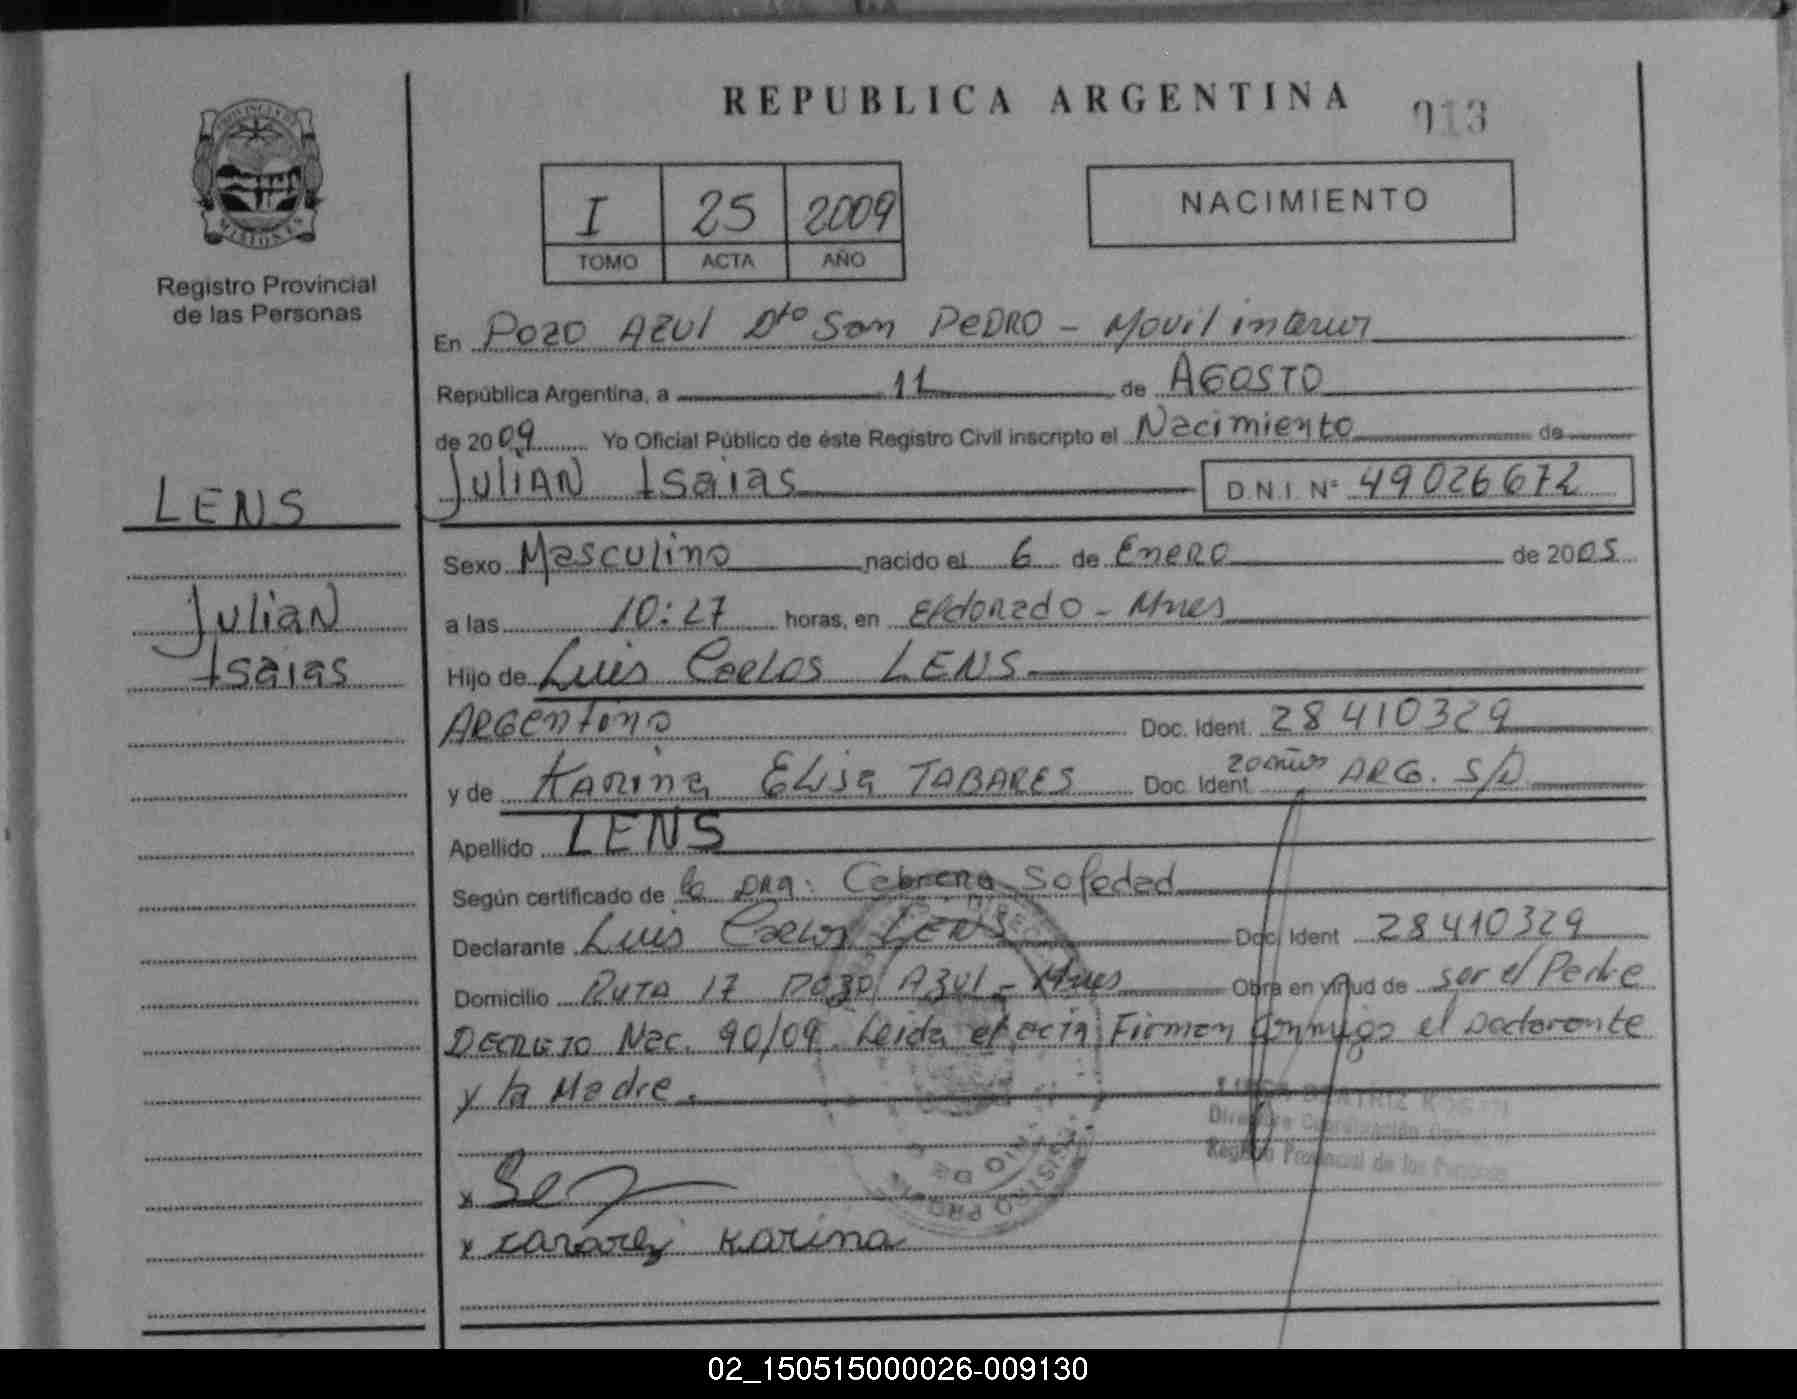 REPUBLICA ARGENTINA
013
PROVINCIA DE
MISIONES
Registro Provincial
de las Personas
I 25 2009
TOMO ACTA AÑO
NACIMIENTO
En Pozo AZUl Dto San PeDRO - Movil interior
República Argentina, a 11 de AGOSTO
de 2009 Yo Oficial Público de éste Registro Civil inscripto el Nacimiento de
JuliAN Isaias D.N.I. Nº 49026672
LENS
Julian
Isaias
Sexo Masculino nacido el 6 de Enero de 2005
a las 10:27 horas, en Eldorado - Mnes
Hijo de Luis Carlos LENS
ARGentino Doc. Ident. 28410329
y de Karina Elisa TABARES Doc. Ident. 20 años ARG. S/D
Apellido LENS
Según certificado de la DRA: Cabrera Soledad
Declarante Luis Carlos LENS Doc. Ident 28410329
Domicilio RUTA 17 Pozo Azul - Mnes Obra en virtud de ser el Padre
DECRETO Nac. 90/09. Leida el acta Firman conmigo el Declarante
y la Madre.
Registro Provincial de las Personas
x
x Karina
02_150515000026-009130